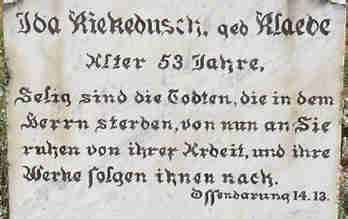 Ida Riekedusch, geb Klaebe
Alter 53 Jahre,
Selig sind die Todten, die in dem
Herrn sterben, von nun an Sie
ruhen von ihrer Arbeit, und ihre
Werke folgen ihnen nach.
Offenbarung 14.13.